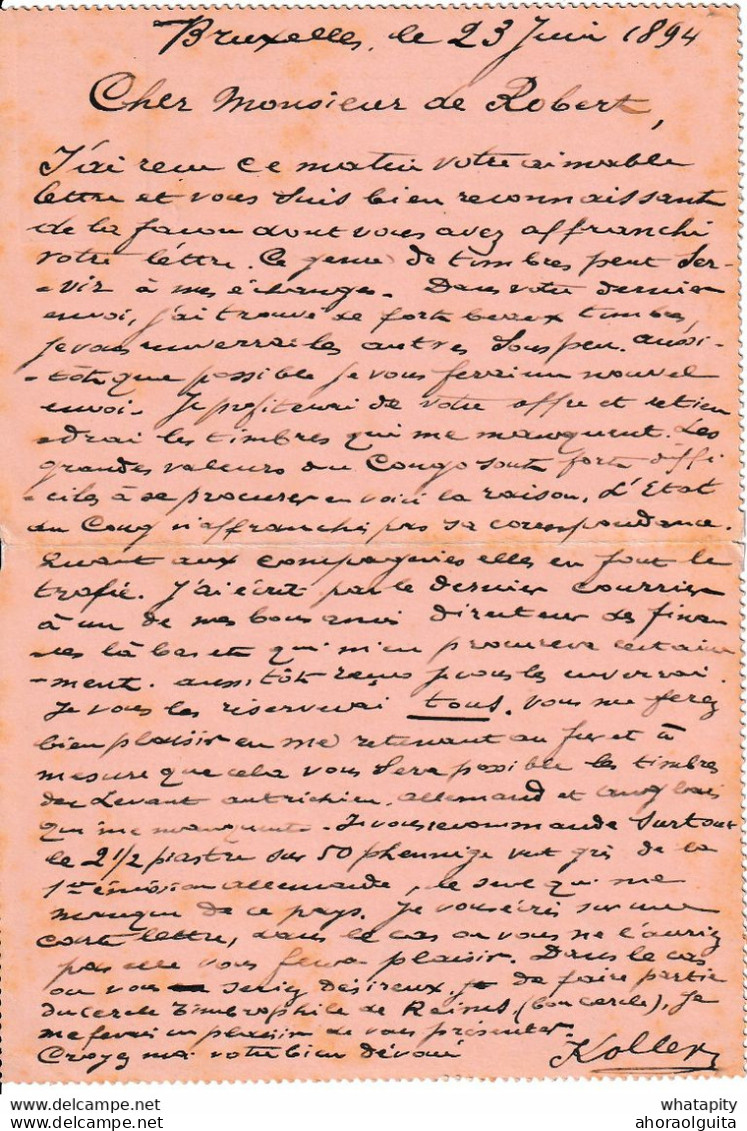 Bruxelles, le 23 Juin 1894
Cher Monsieur de Robert,
J'ai reçu ce matin votre aimable
lettre et vous suis bien reconnaissant
de la façon dont vous avez affranchi
votre léttre. Ce genre de timbres peut ser-
-vir à mes échanges. Dans votre dernier
envoi, j'ai trouvé de forts beaux timbres,
je vous enverrai les autres sous peu. aussi-
-tôt que possible je vous ferai un nouvel
envoi. Je profiterai de votre offre et retien
-drai les timbres qui me manquent. Les
grandes valeurs du Congo sont fort diffi
-ciles à se procurer en voici la raison. L'Etat
du Congo n'affranchi pas sa correspondance.
Quant aux compagnies elles en font le
trafic. J'ai écrit par le dernier courrier
à un de mes bons amis directeur des finan
-ces là bas et qui m'en procurera certaine
-ment. aussitôt reçus je vous les enverrai.
Je vous les réserverai tous. Vous me ferez
bien plaisir en me retenant au fur et à
mesure que cela vous sera possible les timbres
du Levant autrichien, allemand et anglais
qui me manquent. Je vous recommande surtout
le 2 1/2 piastre sur 50 phennige vert gris de la
1re émission allemande, le seul qui me
manque de ce pays. Je vous écris sur une
carte lettre, dans le cas où vous ne l'auriez
pas elle vous fera plaisir. Dans le cas
où vous seriez désireux de faire partie
du cercle timbrophile de Reims, (bon cercle), je
me ferai un plaisir de vous présenter.
Croyez moi votre bien dévoué Koller
whatapity
ahoraolguita